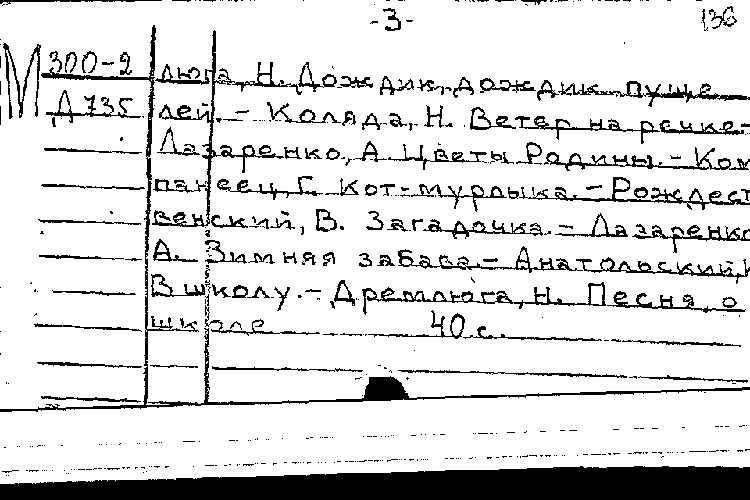 -3-
136
М 300-2 люга, Н. Дождик, дождик пуще
Д 735 лей. - Коляда, Н. Ветер на речке.-
Лазаренко, А Цветы Родины. - Ком
панеец, Г. Кот-мурлыка. - Рождест
венский, В. Загадочка. - Лазаренко
А. Зимняя забава. - Анатольский,
В школу. - Дремлюга, Н. Песня о
школе 40 с.